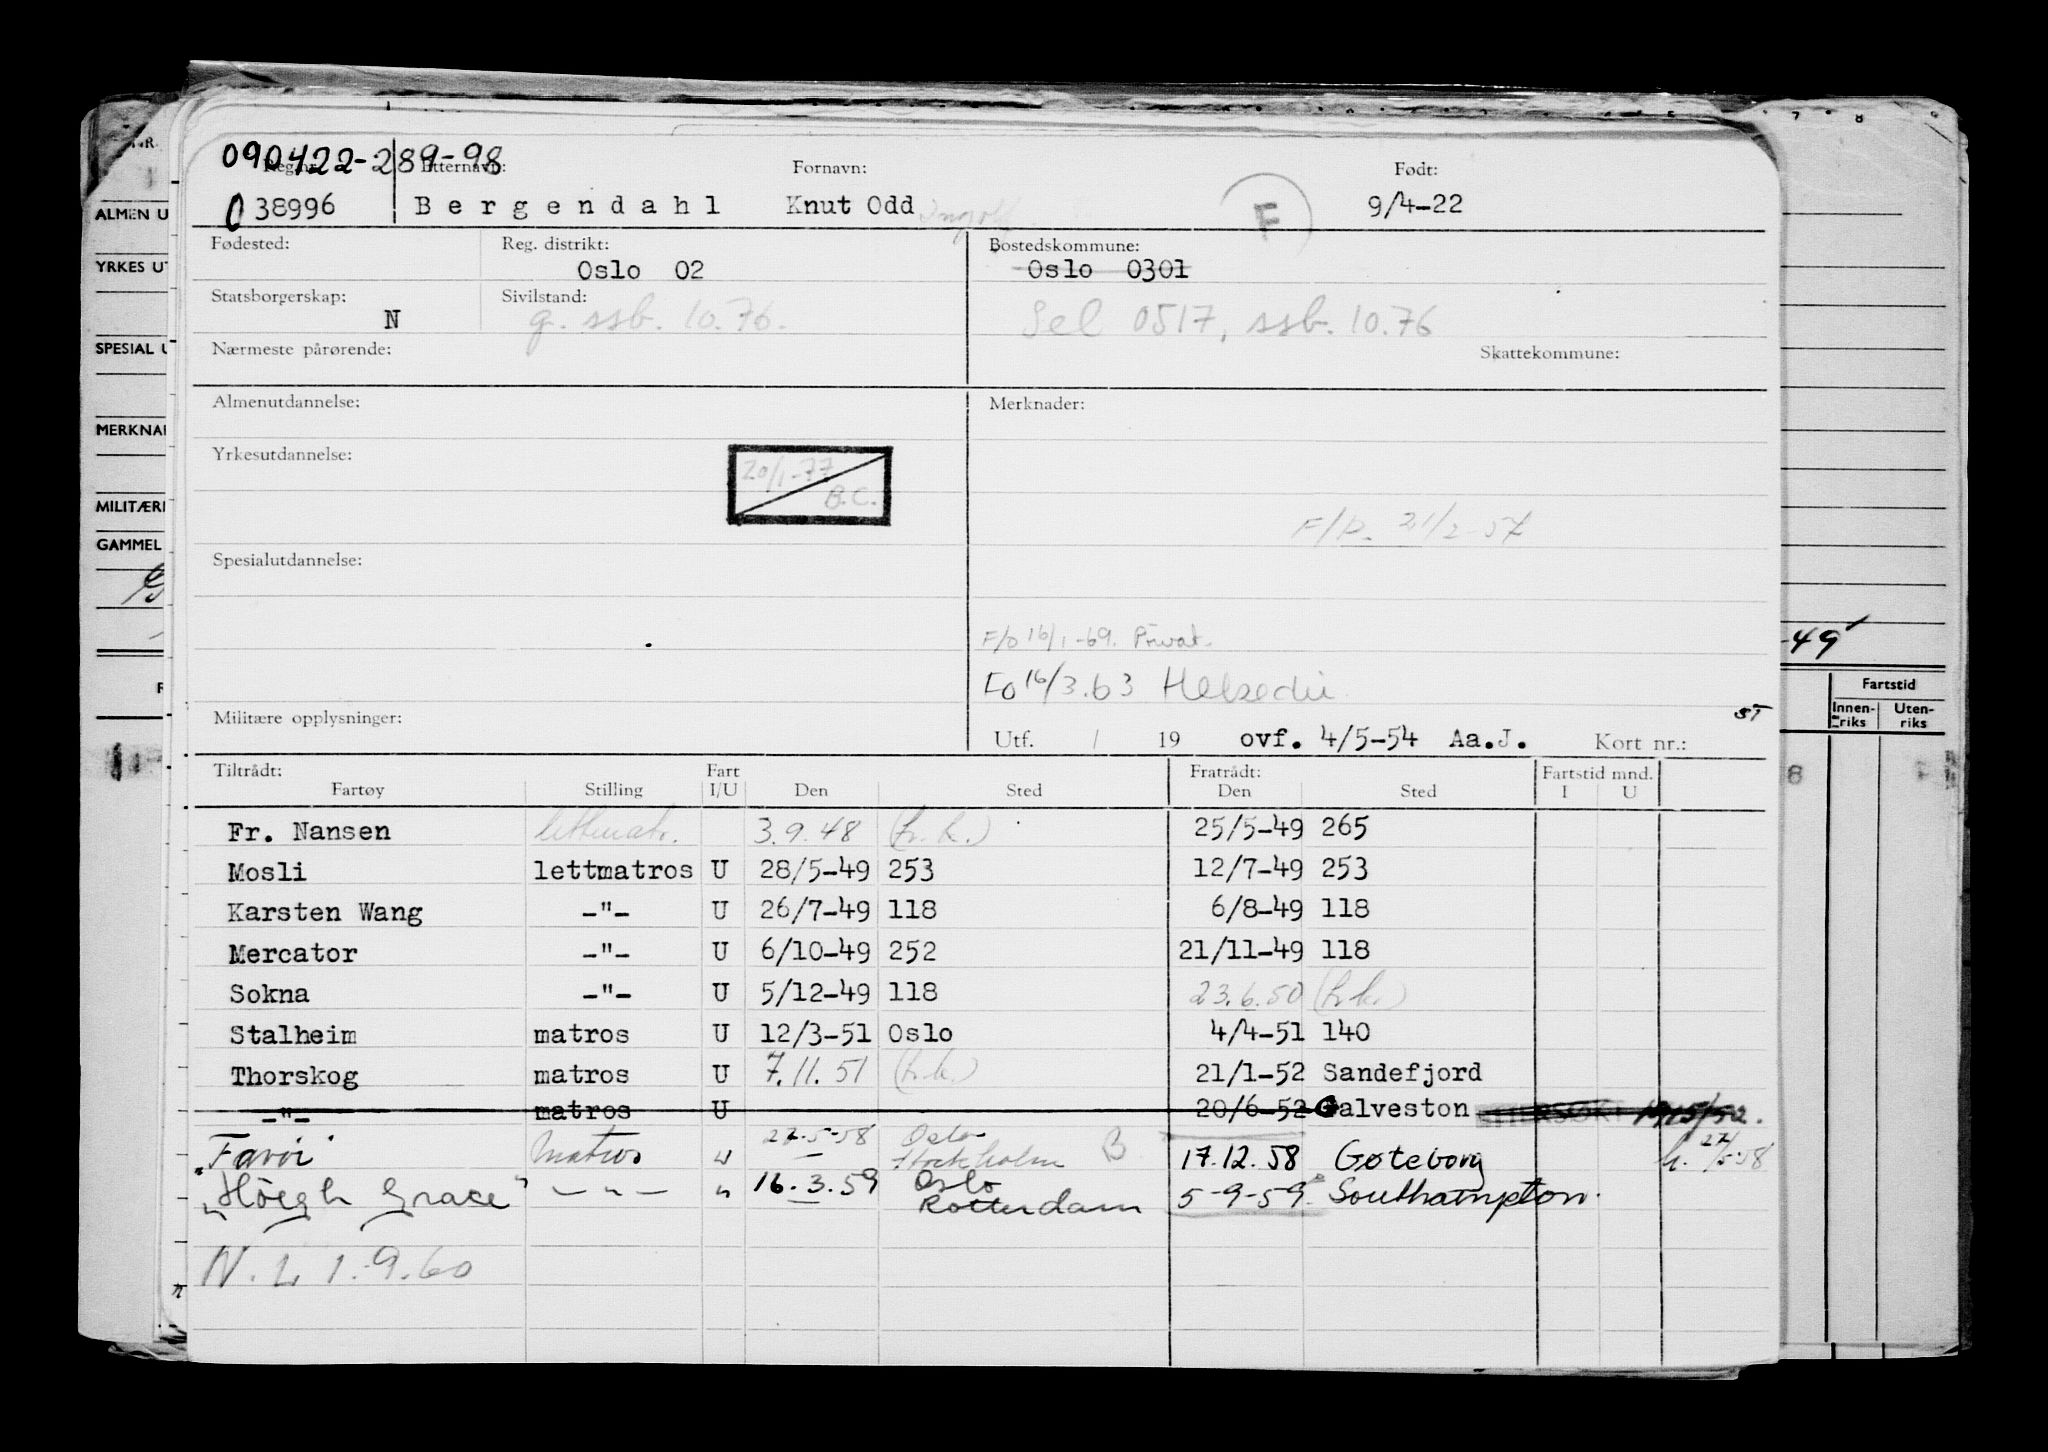 090422-289-98
Reg.nr. Etternavn: Fornavn: Født:
038996 Bergendahl Knut Odd Ingolf F 9/4-22
Fødested: Reg. distrikt: Bostedskommune:
Oslo 02 Oslo 0301
Statsborgerskap: Sivilstand:
N g. ssb. 10.76. Sel 0517, ssb. 10.76
Nærmeste pårørende: Skattekommune:
Almenutdannelse: Merknader:
Yrkesutdannelse:
20/1-77
B.C.
F/D. 21/2-57
Spesialutdannelse:
F/O 16/1-69. Privat.
Fo 16/3.63 Helsedir.
Militære opplysninger:
ST
Utf. / 19 ovf. 4/5-54 Aa.J. Kort nr.:
Tiltrådt: Fart Fratrådt: Fartstid mnd.
Fartøy Stilling I/U Den Sted Den Sted I U
Fr. Nansen lettmatr. 3.9.48 (h.k.) 25/5-49 265
Mosli lettmatros U 28/5-49 253 12/7-49 253
Karsten Wang -"- U 26/7-49 118 6/8-49 118
Mercator -"- U 6/10-49 252 21/11-49 118
Sokna -"- U 5/12-49 118 23.6.50 (h.k.)
Stalheim matros U 12/3-51 Oslo 4/4-51 140
Thorskog matros U 7.11.51 (h.k.) 21/1-52 Sandefjord
-"- matros U 20/6-52 Galveston
Matros U 27.5-58 Oslo Stockholm B 17.12.58 Gøteborg h. 27/5-58
"Höegh Grace" -"- " 16.3.59 Oslo Rotterdam 5-9-59 Southampton.
N.L 1.9.60
ALMEN U
YRKES UT
SPECIAL U
MERKNA
MILITÆR
GAMMEL
-49
Fartstid
Innen-riks Uten-riks
8